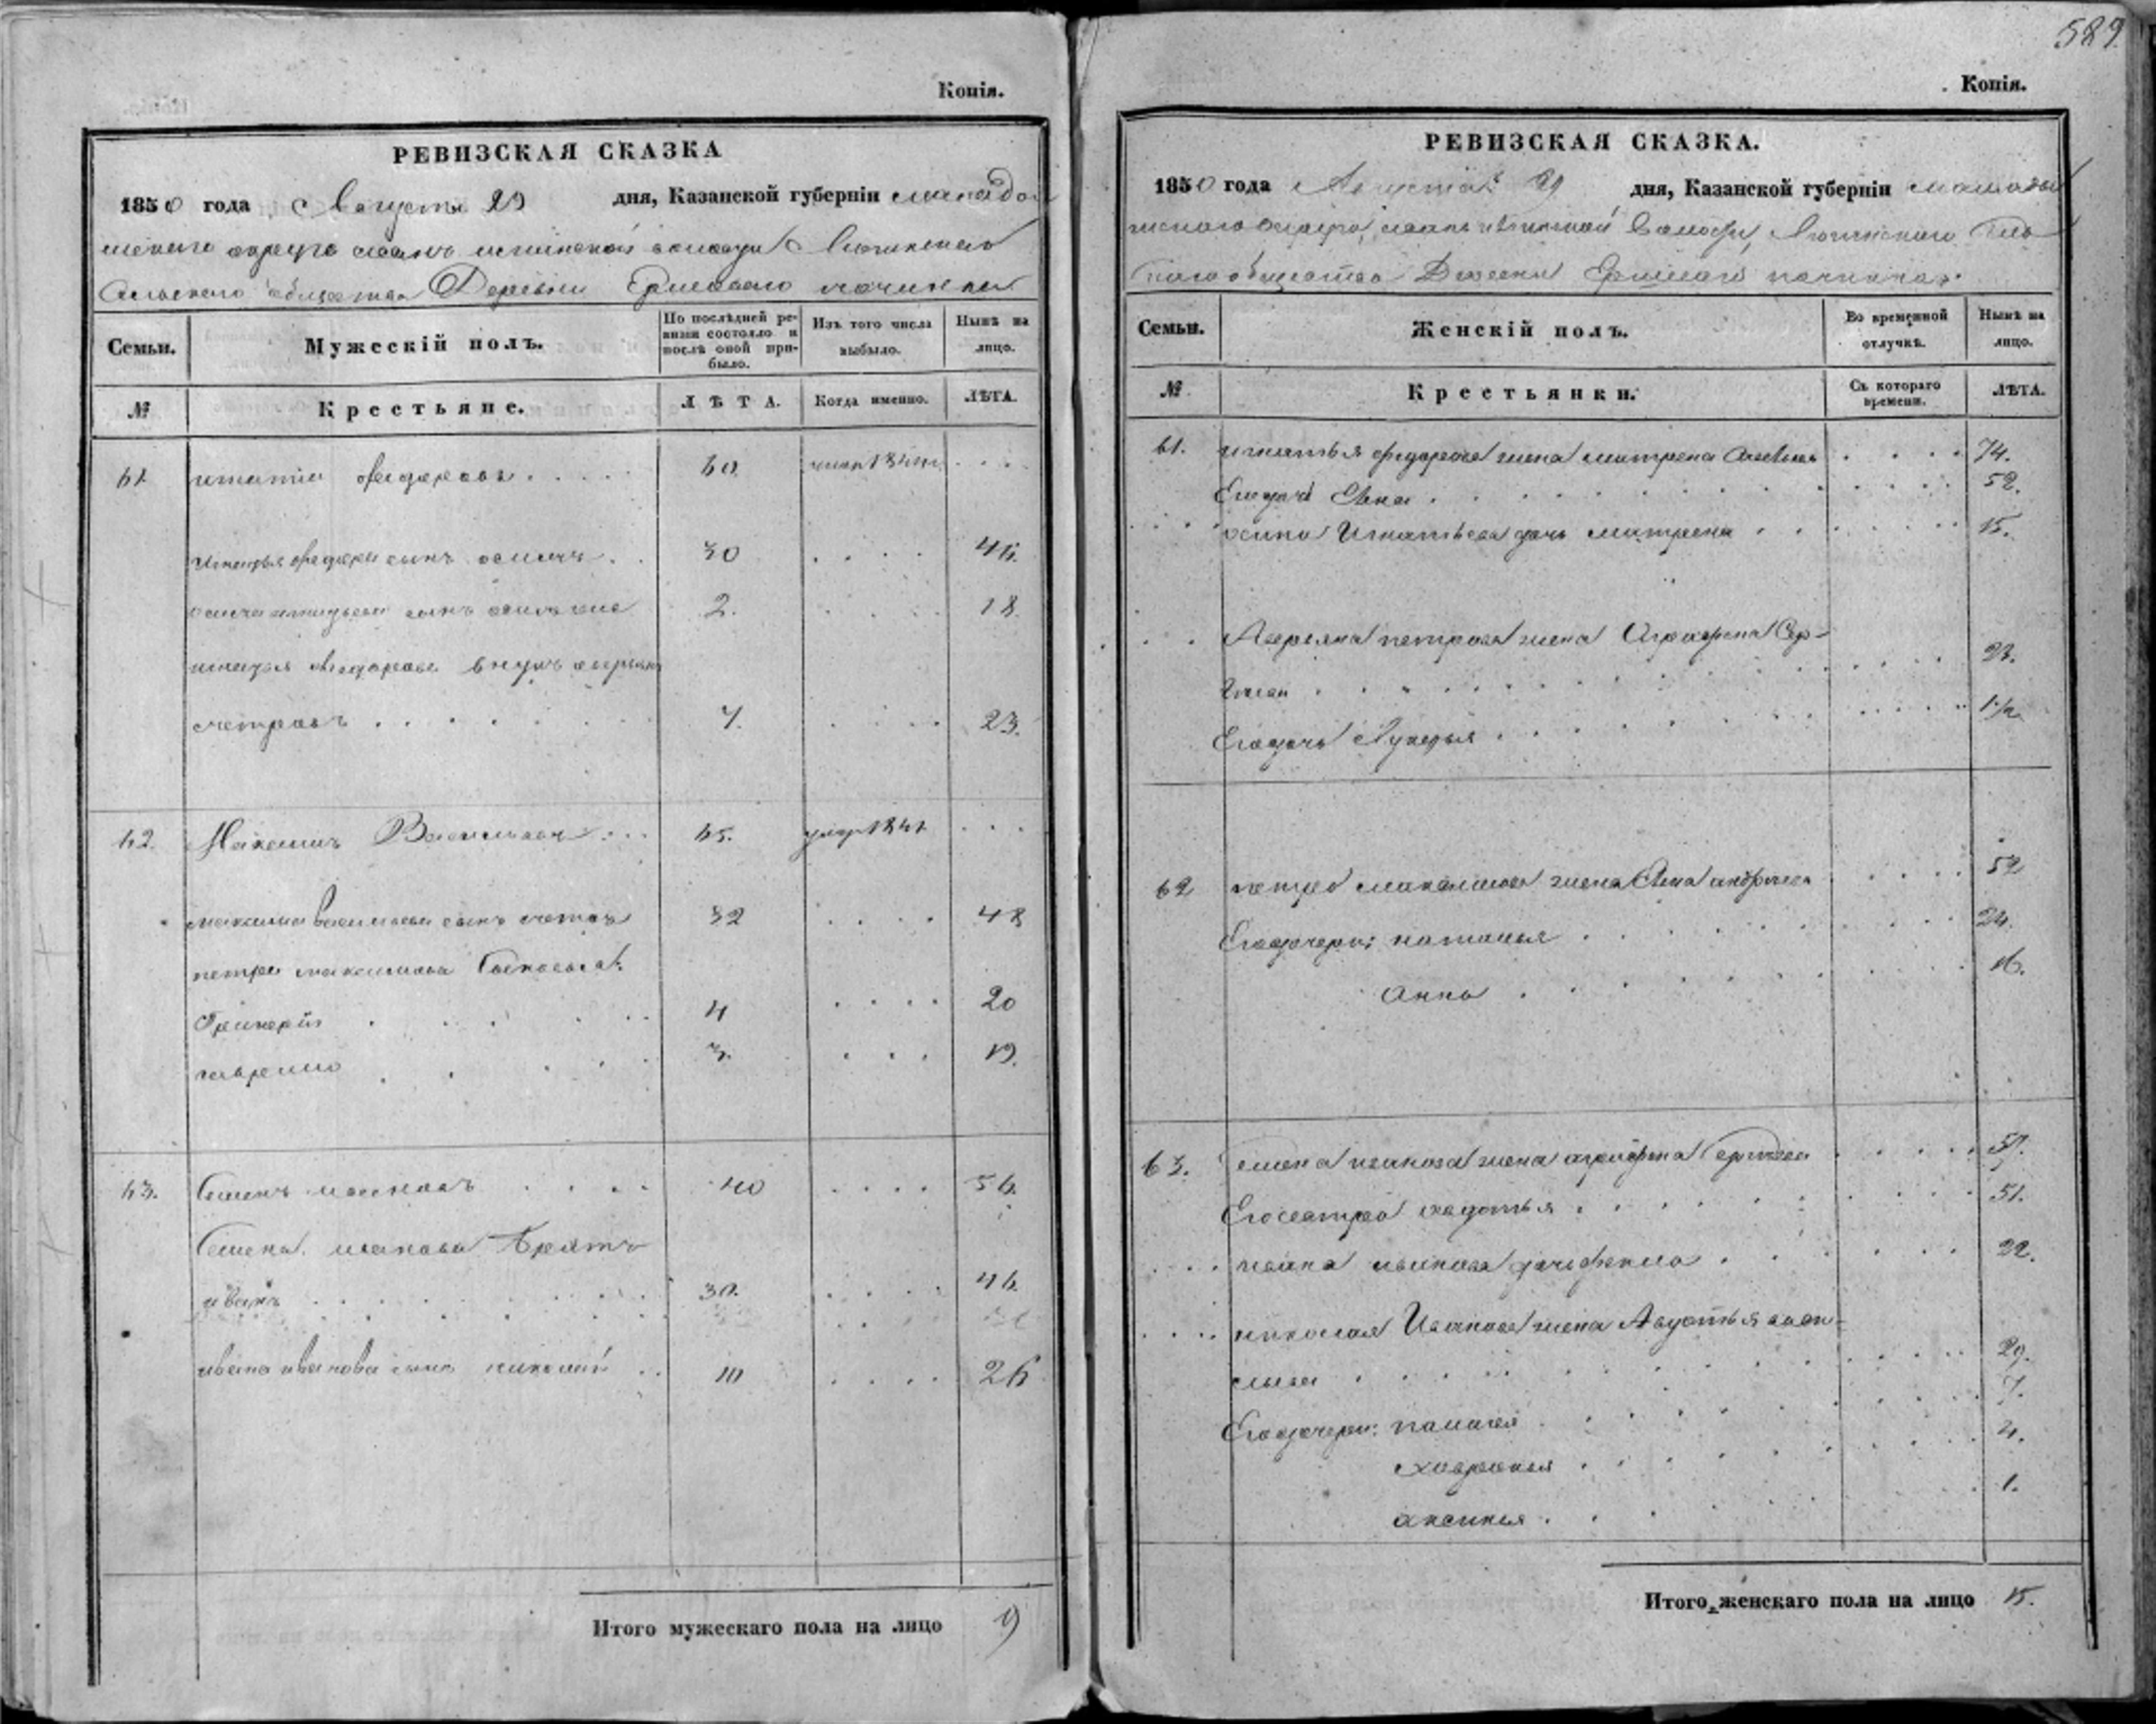 589
Копія.
РЕВИЗСКАЯ СКАЗКА
1850 года Августа 29 дня, Казанской губерніи мамадыш
скаго округа волости
Сельскаго общества Деревни починка
Семьи.
Мужескій полъ.
По послѣдней ре-
визіи состояло и
послѣ оной при-
было.
Изъ того числа
выбыло.
Нынѣ на
лицо.
№
Крестьяне.
ЛѢТА.
Когда именно.
ЛѢТА.
61 игнатій федоровъ 60
игнатья федорова сынъ осипъ 30 46.
осипа игнатьева сынъ 2. 18.
игнатья федорова внукъ аверьянъ
петровъ 7. 23.
62. Максимъ Васильевъ 65. умер 1841
максима васильева сынъ петръ 32 48
петра максимова сыновья:
Григорій 4 20
гаврило 3. 19.
63. Семенъ ивановъ 40 56.
Семена иванова Братъ
иванъ 30. 46
ивана иванова сынъ николай 10 26
Итого мужескаго пола на лицо 9
Копія.
РЕВИЗСКАЯ СКАЗКА.
1850 года Августа 29 дня, Казанской губерніи мамады
шскаго округа, волости, Сель
скаго общества Деревни починка.
Семьи.
Женскій полъ.
Во временной
отлучкѣ.
Нынѣ на
лицо.
№
Крестьянки.
Съ котораго
времени.
ЛѢТА.
61. игнатья федорова жена матрена 74.
52.
осипа Игнатьева дочь матрена 15.
Аверьяна петрова жена Аграфена Сер-
гѣева 23.
Его дочь Лукерья 1/2
62 петра максимова жена Анна андреева 52
Его дочери: наталья 24.
анна 16.
63. семена иванова жена аграфена Сергѣева 57.
Его сестра авдотья 51.
ивана иванова дочь фекла 22.
николая Иванова жена Авдотья васи-
льева 29.
Его дочери: палагея 7.
хавронья 4.
аксинья 1.
Итого женскаго пола на лицо 15.